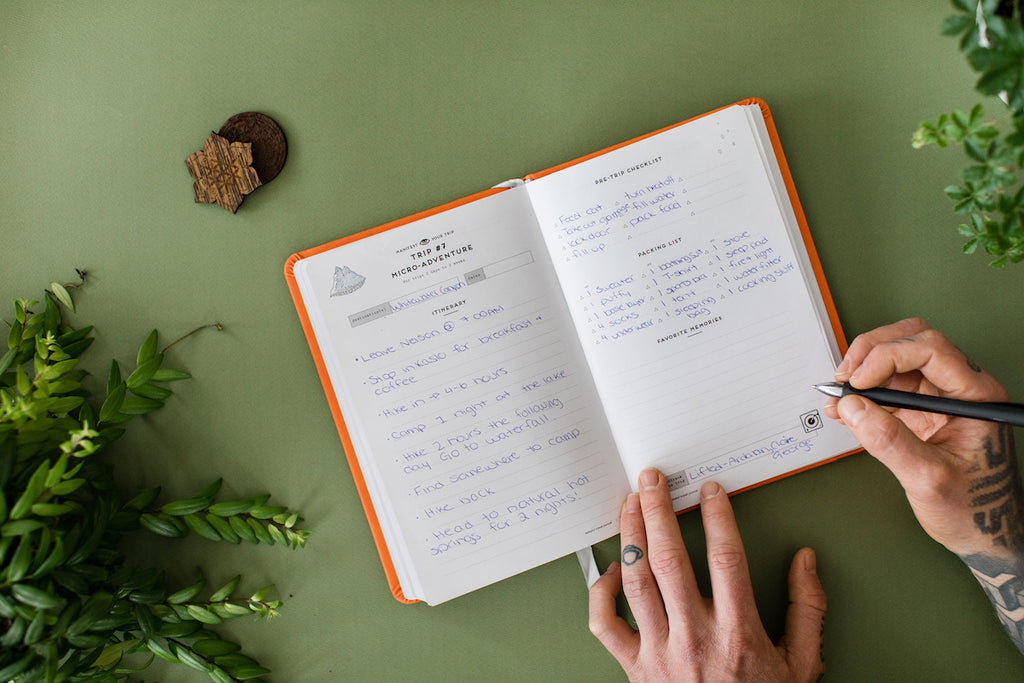 MANIFEST YOUR TRIP
TRIP #7
MICRO-ADVENTURE
Whitewater Canyon
ITINERARY
• Leave Nelson @ 7:00AM
• Stop in Kaslo for breakfast +
coffee
• Hike in → 4-6 hours
• Camp 1 night at the lake
• Hike 2 hours the following
day. Go to waterfall
• Find somewhere to camp
• Hike back
• Head to natural hot
springs for 2 nights!
PRE-TRIP CHECKLIST
Feed cat
turn heat off
Take out garbage
fill water
lock door
pack food
fill up
PACKING LIST
1 sweater
1 bathing suit
1 stove
1 puffy
1 T-shirt
1 sleep pad
1 base layer
1 sports bra
1 first light
4 socks
1 tent
1 water filter
4 underwear
1 sleeping
bag
1 cooking stuff
FAVORITE MEMORIES
Lifted - Anthony
George